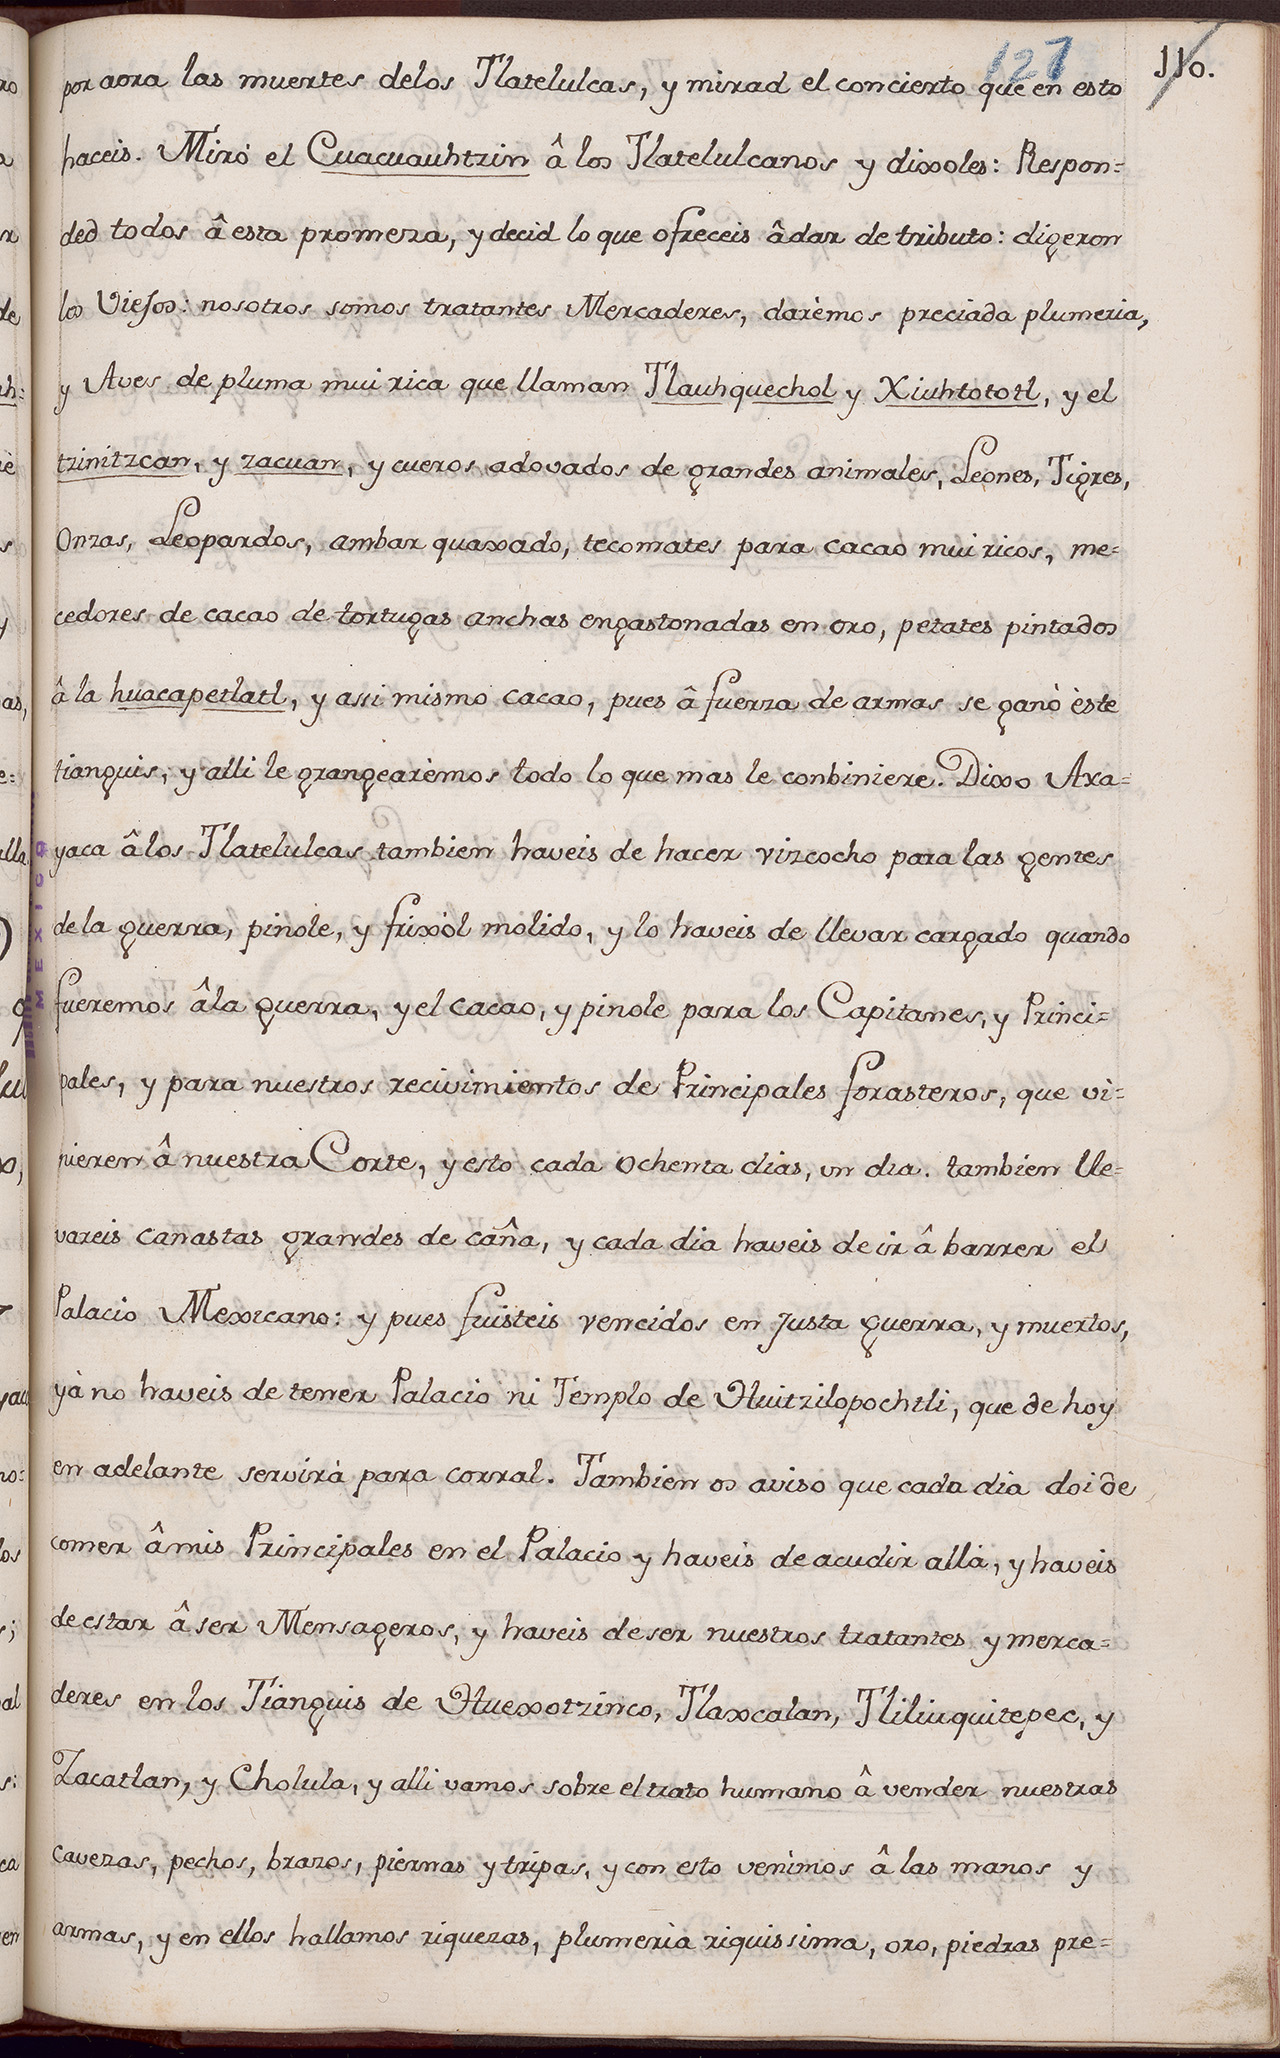 127
110.
por aora las muertes delos Tlatelulcas, y mirad el concierto que en esto
haceis. Miró el Cuacuauhtzin â los Tlatelulcanos y dixoles: Respon=
ded todos â esta promeza, y decid lo que ofreceis âdar de tributo: digeron
los Viejos: nosotros somos tratantes Mercaderes, darèmos preciada plumeria,
y Aves de pluma mui rica que llaman Tlauhquechol y Xiuhtototl, y el
tzinitzcan, y zacuan, y cueros adovados de grandes animales, Leones, Tigres,
Onzas, Leopardos, ambar quaxado, tecomates para cacao mui ricos, me=
cedores de cacao de tortugas anchas engastonadas en oro, petates pintados
â la huacapetlatl, y assi mismo cacao, pues â fuerza de armas se ganò èste
tianguis, y alli le grangearèmos todo lo que mas le conbiniere. Dixo Axa=
yaca â los Tlatelulcas tambien haveis de hacer vizcocho para las gentes
de la guerra, pinole, y frixòl molido, y lo haveis de llevar cargado quando
fueremos âla guerra, y el cacao, y pinole para los Capitanes, y Princi=
pales, y para nuestros recivimientos de Principales forasteros, que vi=
nieren â nuestra Corte, y esto cada ochenta dias, un dia. tambien lle=
vareis canastas grandes de caña, y cada dia haveis de ir â barrer el
Palacio Mexicano: y pues fuisteis vencidos en justa guerra, y muertos,
yà no haveis de tener Palacio ni Templo de Huitzilopochtli, que de hoy
en adelante servirà para corral. Tambien os aviso que cada dia doi de
comer âmis Principales en el Palacio y haveis de acudir allà, y haveis
de estar â ser Mensageros, y haveis de ser nuestros tratantes y merca=
deres en los Tianguis de Huexotzinco, Tlaxcalan, Tliliuquitepec, y
Zacatlan, y Cholula, y alli vamos sobre el trato humano â vender nuestras
cavezas, pechos, brazos, piernas y tripas, y con esto venimos â las manos y
armas, y en ellos hallamos riquezas, plumerìa riquissima, oro, piedras pre=
MEXICO